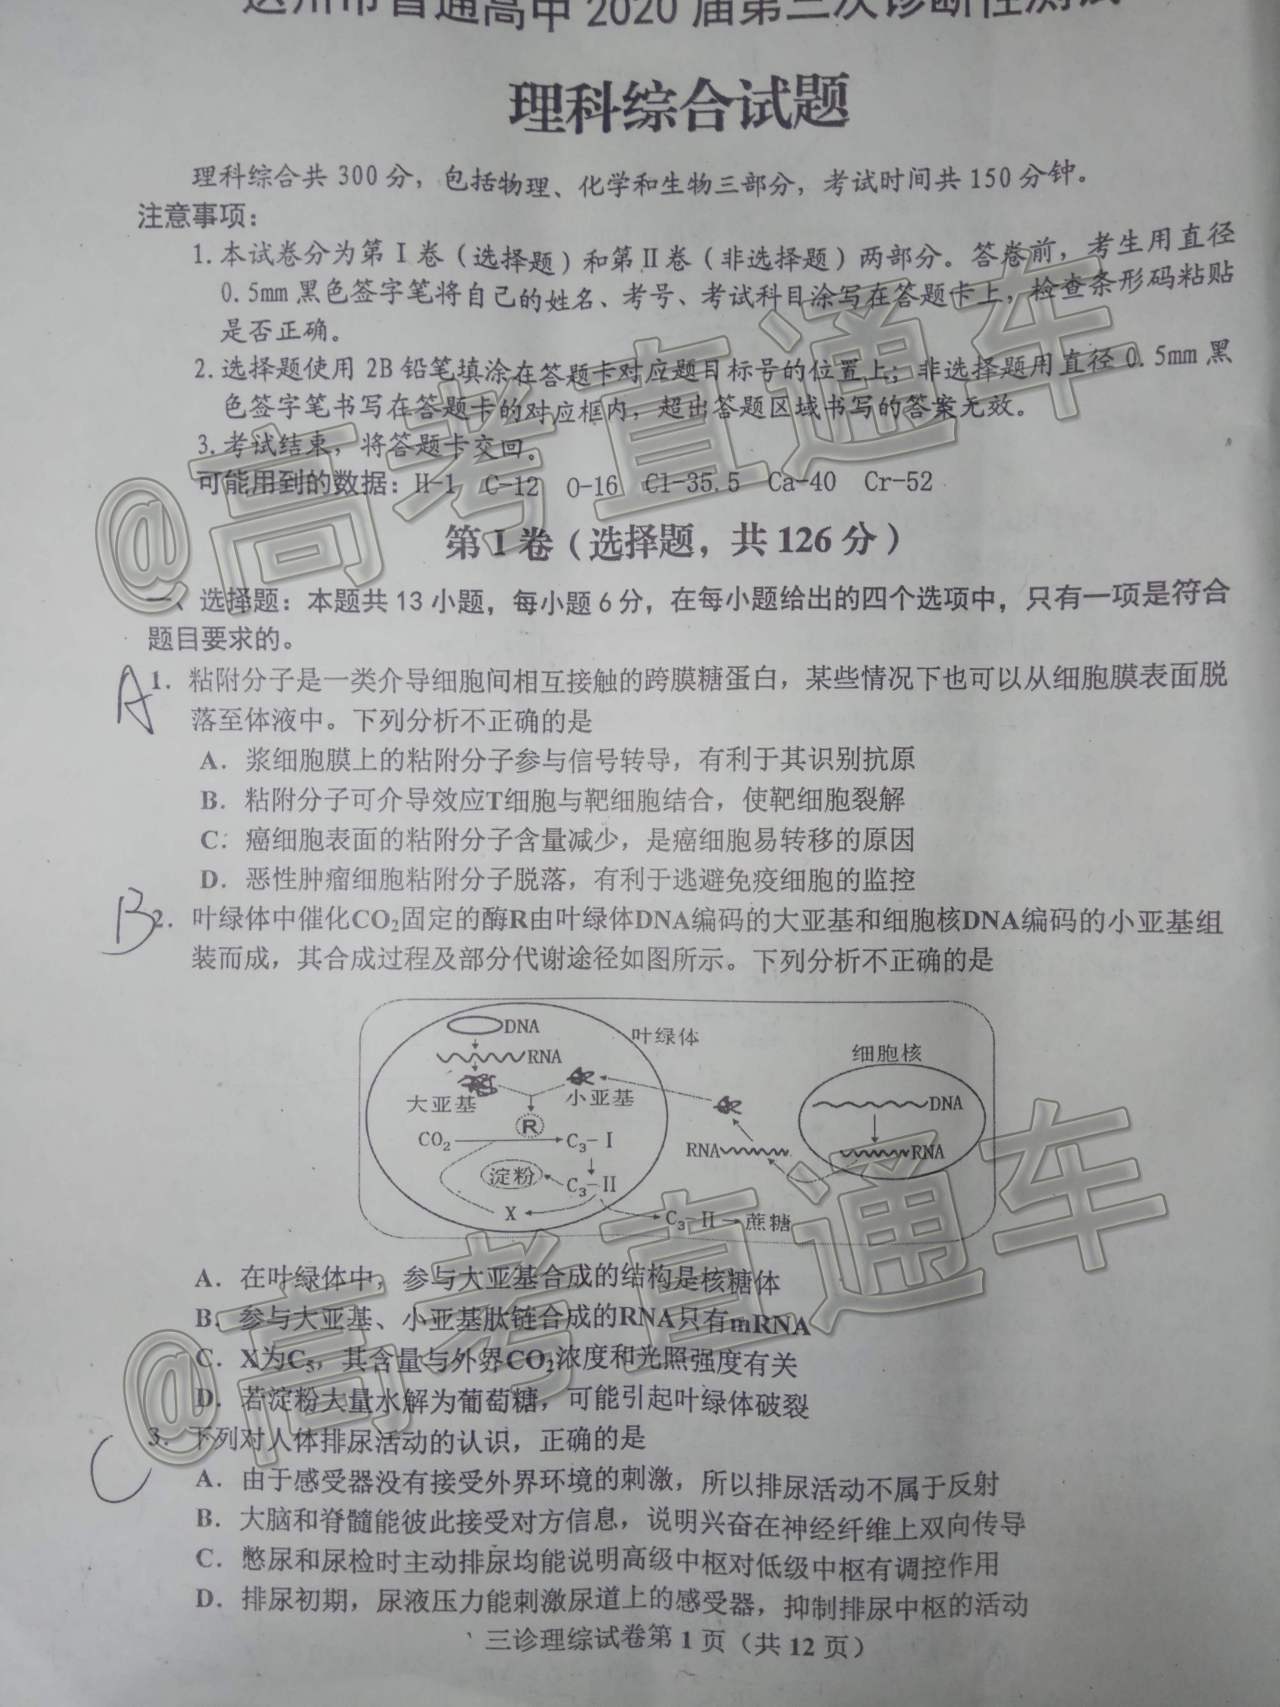 达州市普通高中 2020 届第三次诊断性测试
理科综合试题
理科综合共 300 分，包括物理、化学和生物三部分，考试时间共 150 分钟。
注意事项：
1. 本试卷分为第Ⅰ卷（选择题）和第Ⅱ卷（非选择题）两部分。答卷前，考生用直径
0.5mm 黑色签字笔将自己的姓名、考号、考试科目涂写在答题卡上，检查条形码粘贴
是否正确。
2. 选择题使用 2B 铅笔填涂在答题卡对应题目标号的位置上；非选择题用直径 0.5mm 黑
色签字笔书写在答题卡的对应框内，超出答题区域书写的答案无效。
3. 考试结束，将答题卡交回。
可能用到的数据：H-1 C-12 O-16 Cl-35.5 Ca-40 Cr-52
@高考直通车
第Ⅰ卷（选择题，共 126 分）
一、选择题：本题共 13 小题，每小题 6 分，在每小题给出的四个选项中，只有一项是符合
题目要求的。
A 1．粘附分子是一类介导细胞间相互接触的跨膜糖蛋白，某些情况下也可以从细胞膜表面脱
落至体液中。下列分析不正确的是
A．浆细胞膜上的粘附分子参与信号转导，有利于其识别抗原
B．粘附分子可介导效应T细胞与靶细胞结合，使靶细胞裂解
C．癌细胞表面的粘附分子含量减少，是癌细胞易转移的原因
D．恶性肿瘤细胞粘附分子脱落，有利于逃避免疫细胞的监控
B 2．叶绿体中催化CO₂固定的酶R由叶绿体DNA编码的大亚基和细胞核DNA编码的小亚基组
装而成，其合成过程及部分代谢途径如图所示。下列分析不正确的是
DNA
叶绿体
RNA
细胞核
大亚基
小亚基
DNA
R
CO₂
C₃-Ⅰ
RNA
RNA
淀粉
C₃-Ⅱ
X
C₃-Ⅱ
蔗糖
A．在叶绿体中，参与大亚基合成的结构是核糖体
B．参与大亚基、小亚基肽链合成的RNA只有mRNA
C．X为C₅，其含量与外界CO₂浓度和光照强度有关
D．若淀粉大量水解为葡萄糖，可能引起叶绿体破裂
@高考直通车
C 3．下列对人体排尿活动的认识，正确的是
A．由于感受器没有接受外界环境的刺激，所以排尿活动不属于反射
B．大脑和脊髓能彼此接受对方信息，说明兴奋在神经纤维上双向传导
C．憋尿和尿检时主动排尿均能说明高级中枢对低级中枢有调控作用
D．排尿初期，尿液压力能刺激尿道上的感受器，抑制排尿中枢的活动
三诊理综试卷第 1 页（共 12 页）